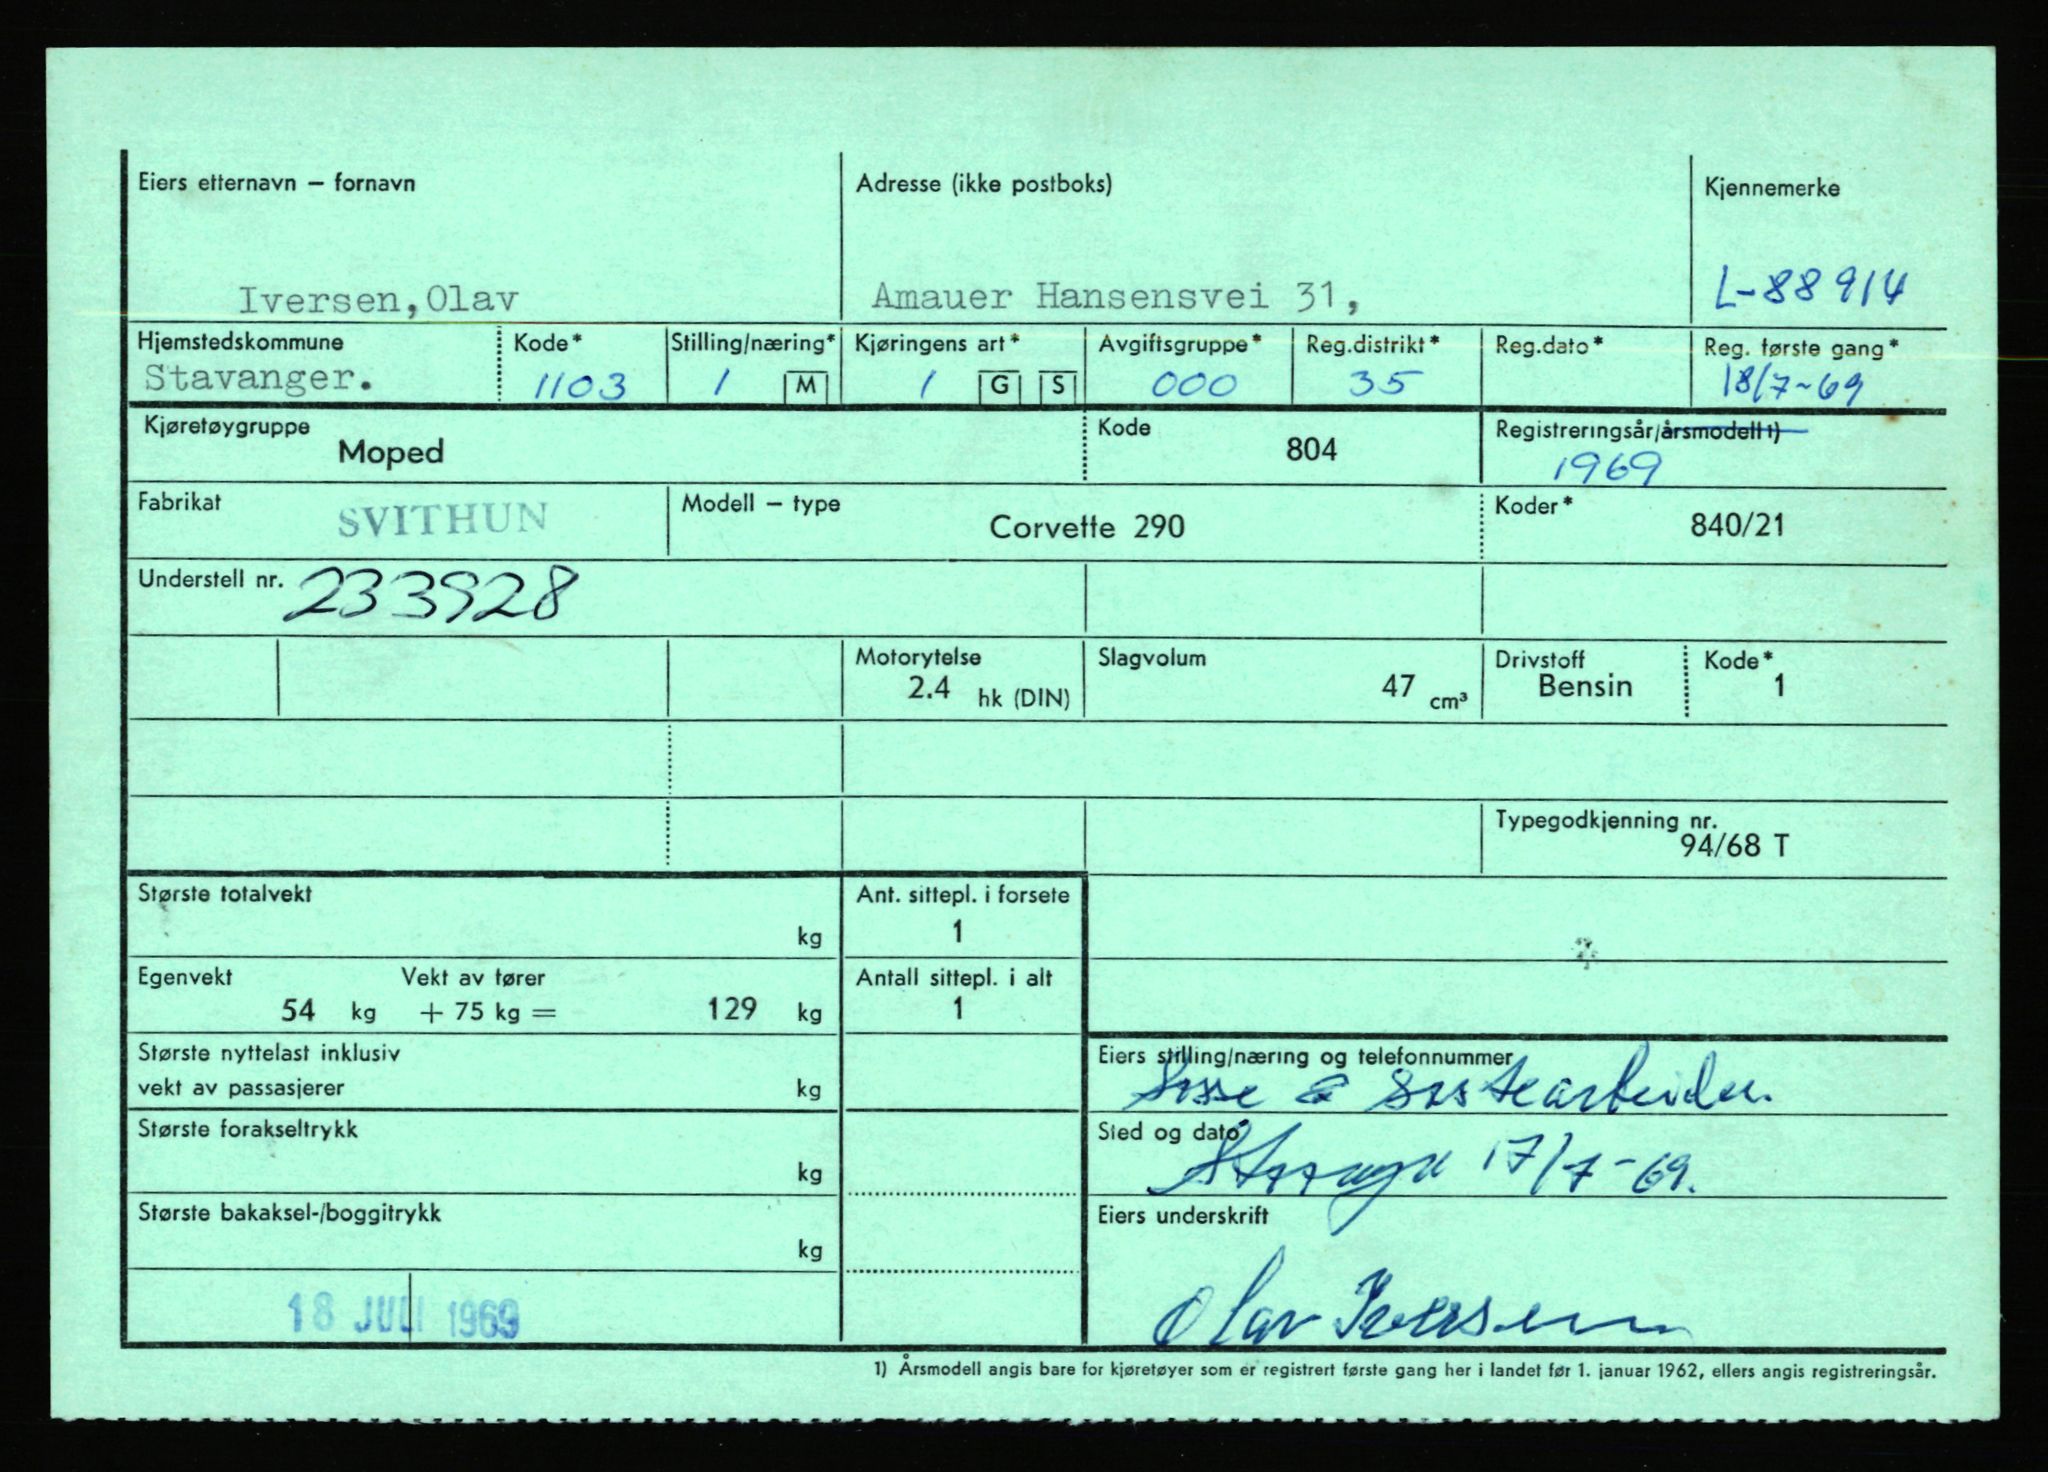 Eiers etternavn – fornavn
Adresse (ikke postboks)
Kjennemerke
Iversen,Olav
Amauer Hansensvei 31,
L-88914
Hjemstedskommune
Kode*
Stilling/næring*
Kjøringens art*
Avgiftsgruppe*
Reg.distrikt*
Reg.dato*
Reg. første gang*
Stavanger.
1103
1 M
1 G S
000
35
18/7-69
Kjøretøygruppe
Moped
Kode
804
Registreringsår/årsmodell 1)
1969
Fabrikat
SVITHUN
Modell – type
Corvette 290
Koder*
840/21
Understell nr. 233928
Motorytelse
2.4 hk (DIN)
Slagvolum
47 cm³
Drivstoff
Bensin
Kode*
1
Typegodkjenning nr.
94/68 T
Største totalvekt
kg
Ant. sittepl. i forsete
1
Egenvekt Vekt av fører
54 kg + 75 kg = 129 kg
Antall sittepl. i alt
1
Største nyttelast inklusiv
vekt av passasjerer kg
Eiers stilling/næring og telefonnummer
Største forakseltrykk
kg
Sted og dato
17/7-69.
Største bakaksel-/boggitrykk
kg
Eiers underskrift
Olav Iversen
18 JULI 1969
1) Årsmodell angis bare for kjøretøyer som er registrert første gang her i landet før 1. januar 1962, ellers angis registreringsår.